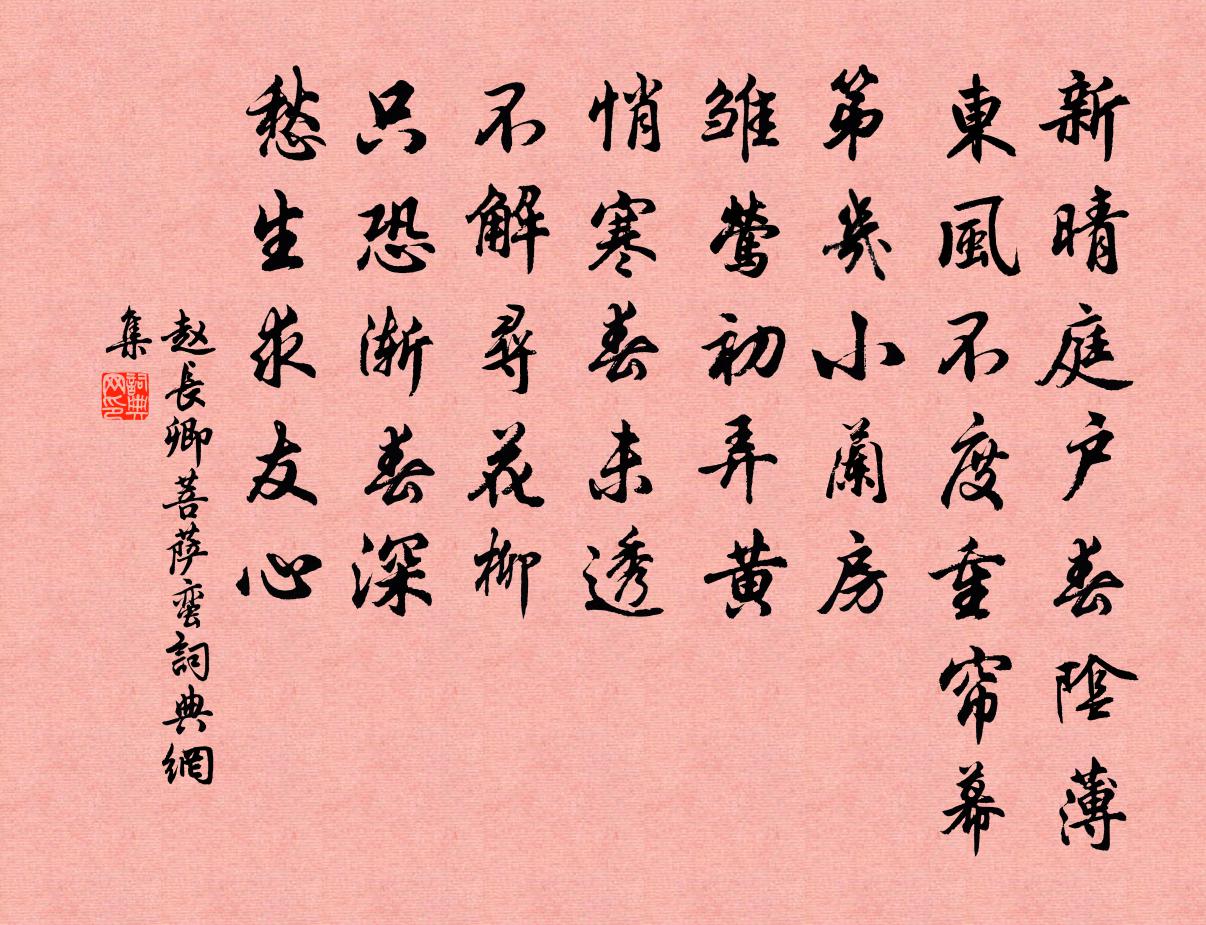 新晴庭户春陰薄
東風不度重帘幕
第幾小蘭房
雏鶯初弄黄
悄寒春未透
不解尋花柳
只恐漸春深
愁生求友心
赵長卿菩萨蛮詞典網
集
詞典
网印